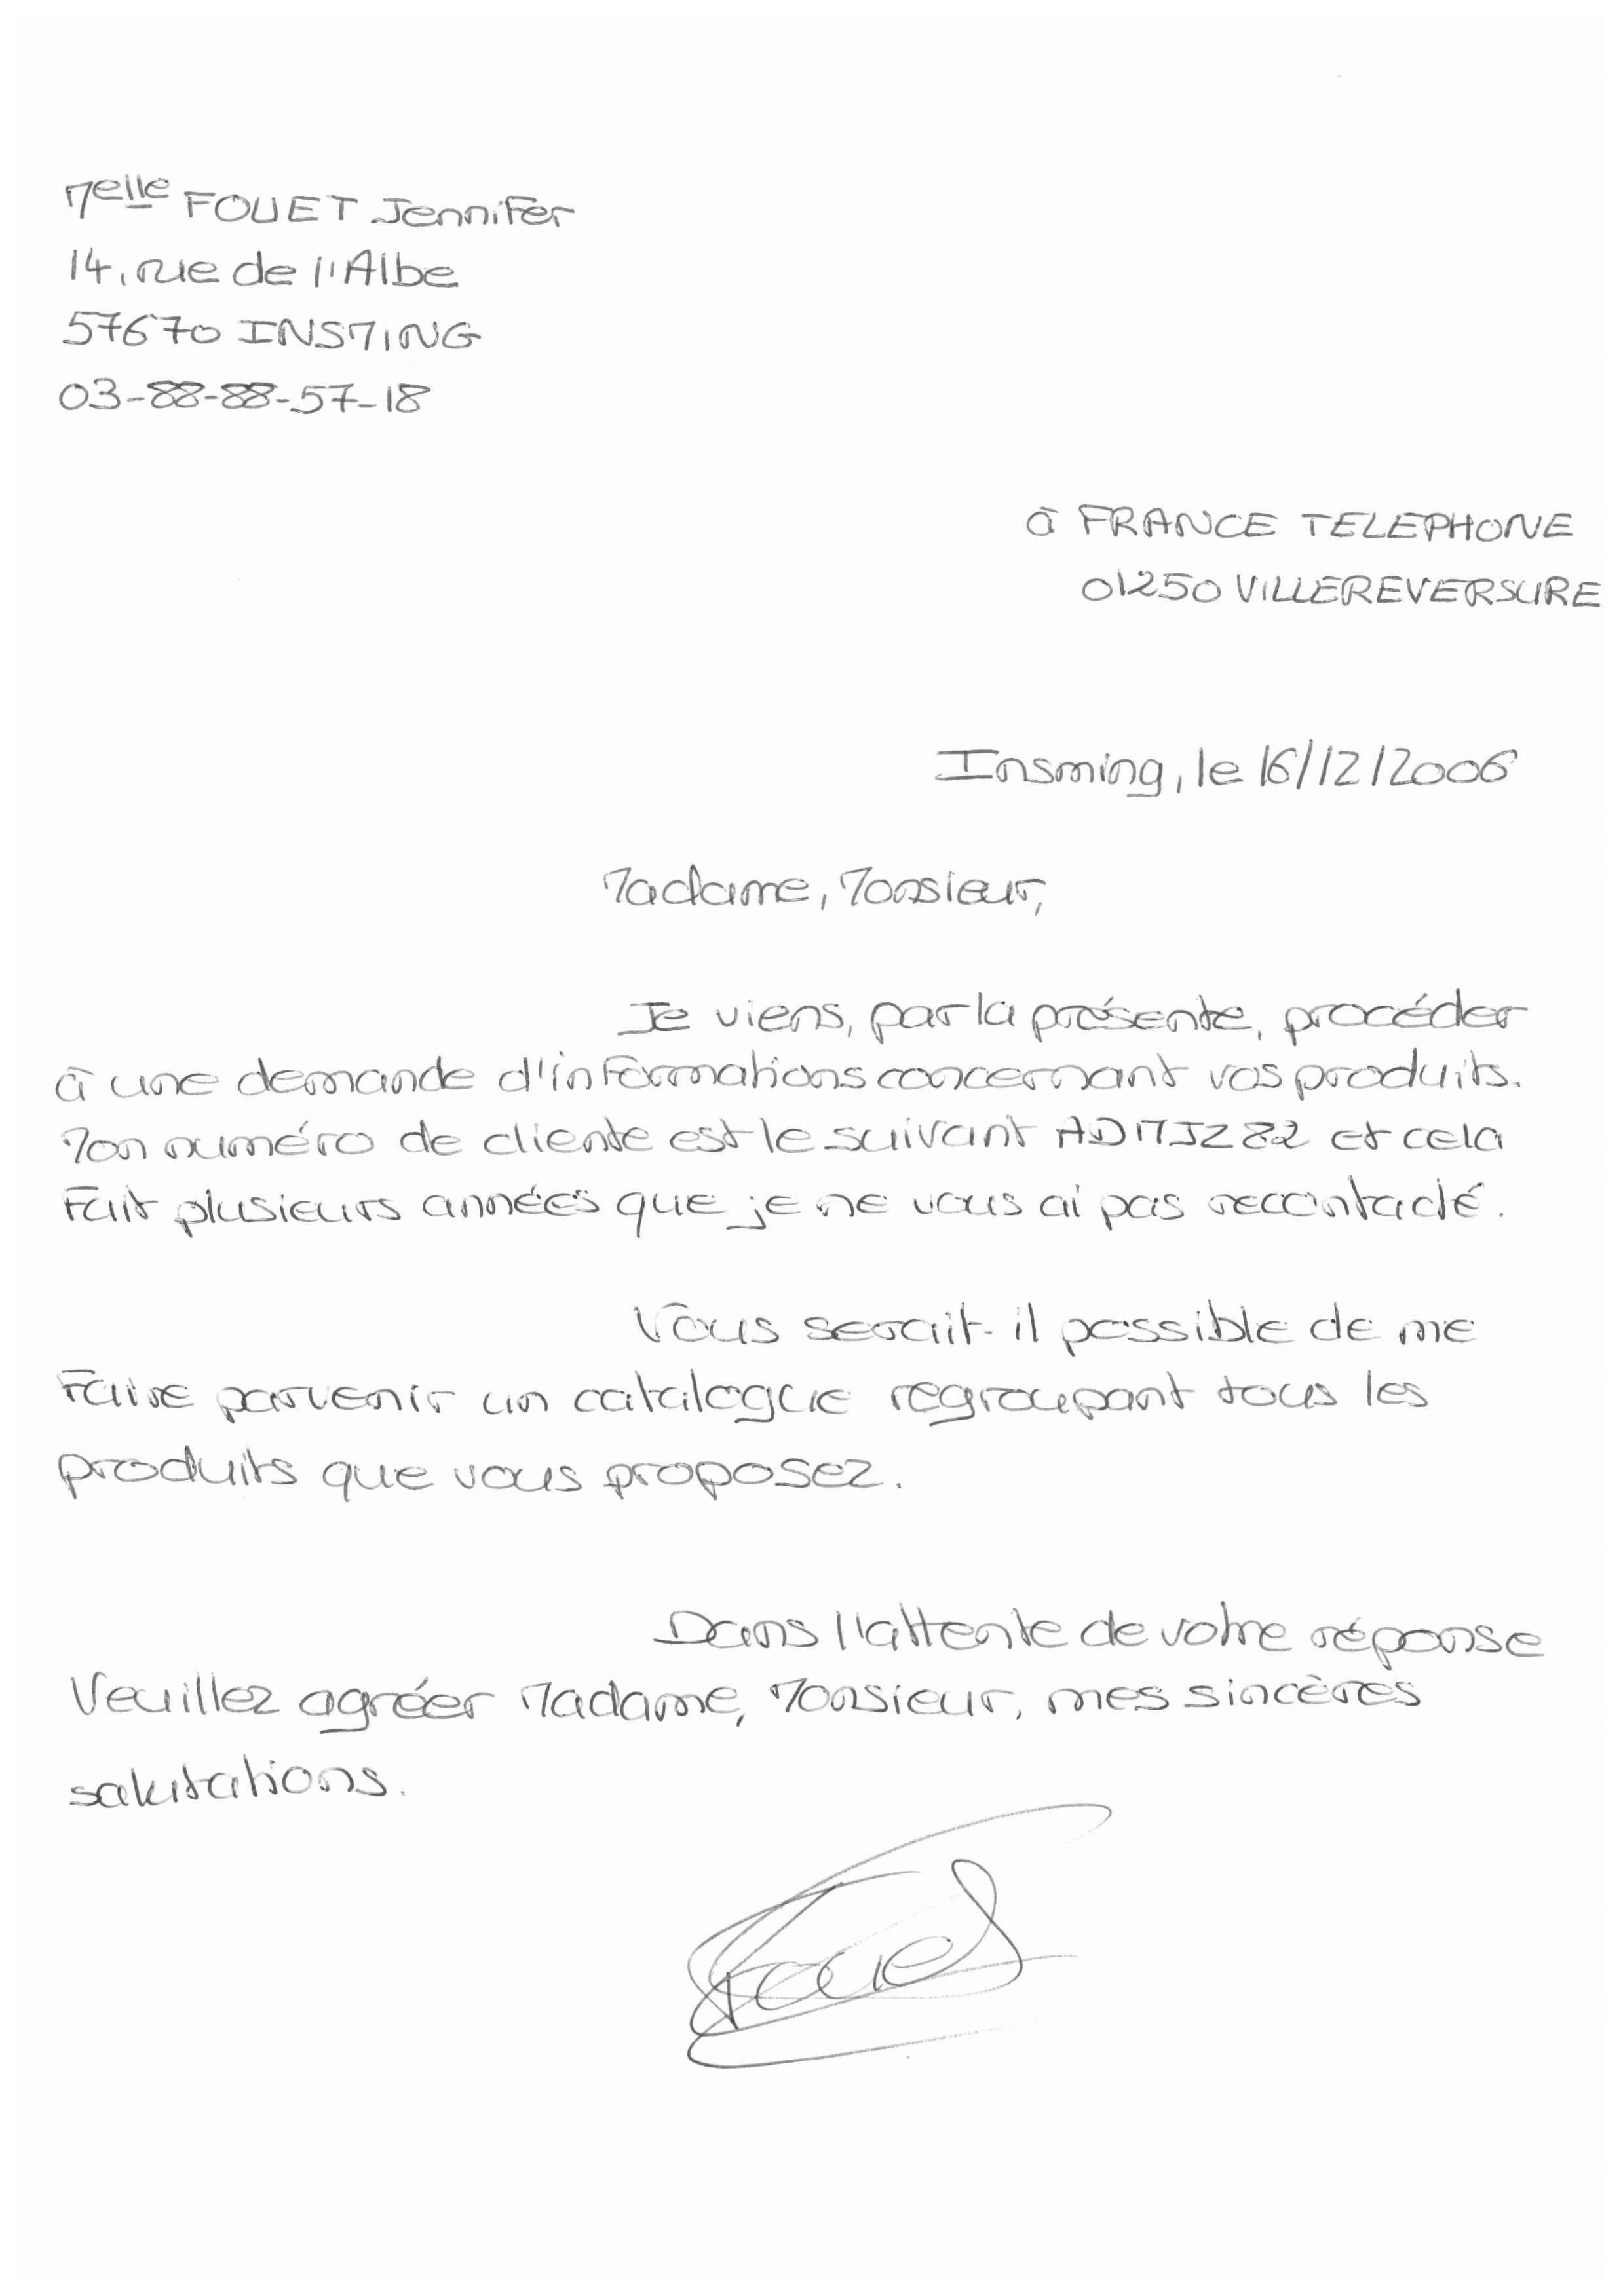 Melle FOUET Jennifer
14, rue de l'Albe
57670 INSMING
03-88-88-57-18
à FRANCE TELEPHONE
01250 VILLEREVERSURE
Insming, le 16/12/2006
Madame, Monsieur,
Je viens, par la présente, procéder
à une demande d'informations concernant vos produits.
Mon numéro de cliente est le suivant ADMJZ82 et cela
fait plusieurs années que je ne vous ai pas recontacté.
Vous serait-il possible de me
faire parvenir un catalogue regroupant tous les
produits que vous proposez.
Dans l'attente de votre réponse
Veuillez agréer Madame, Monsieur, mes sincères
salutations.
Fouet